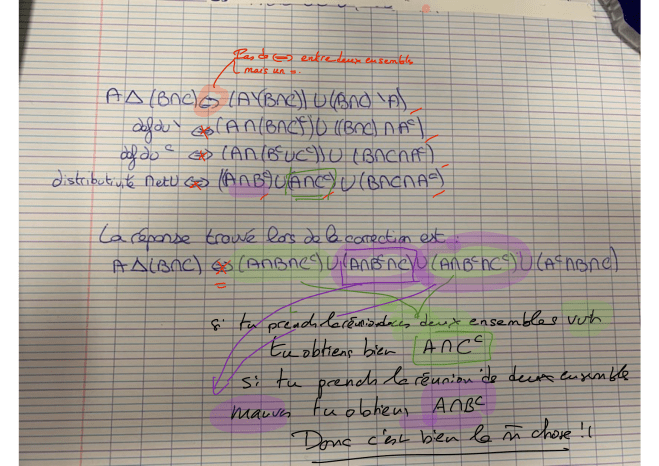 Pas de ⇔ entre deux ensembles
mais un =.
A Δ (B∩C) ⇔ (A\(B∩C)) ∪ ((B∩C)\A)
def du \ ⇔ (A∩(B∩C)ᶜ) ∪ ((B∩C)∩Aᶜ)
def du ᶜ ⇔ (A∩(Bᶜ∪Cᶜ)) ∪ (B∩C∩Aᶜ)
distributivité ∩ et ∪ ⇔ (A∩Bᶜ)∪(A∩Cᶜ)∪(B∩C∩Aᶜ)
La réponse trouvé lors de la correction est :
A Δ (B∩C) ⇔ (A∩B∩Cᶜ)∪(A∩Bᶜ∩C)∪(A∩Bᶜ∩Cᶜ)∪(Aᶜ∩B∩C)
=
si tu prends la réunion deux ensembles vert
tu obtiens bien A∩Cᶜ
si tu prends la réunion de deux ensemble
mauves tu obtiens A∩Bᶜ
Donc c'est bien la m̂ chose !!